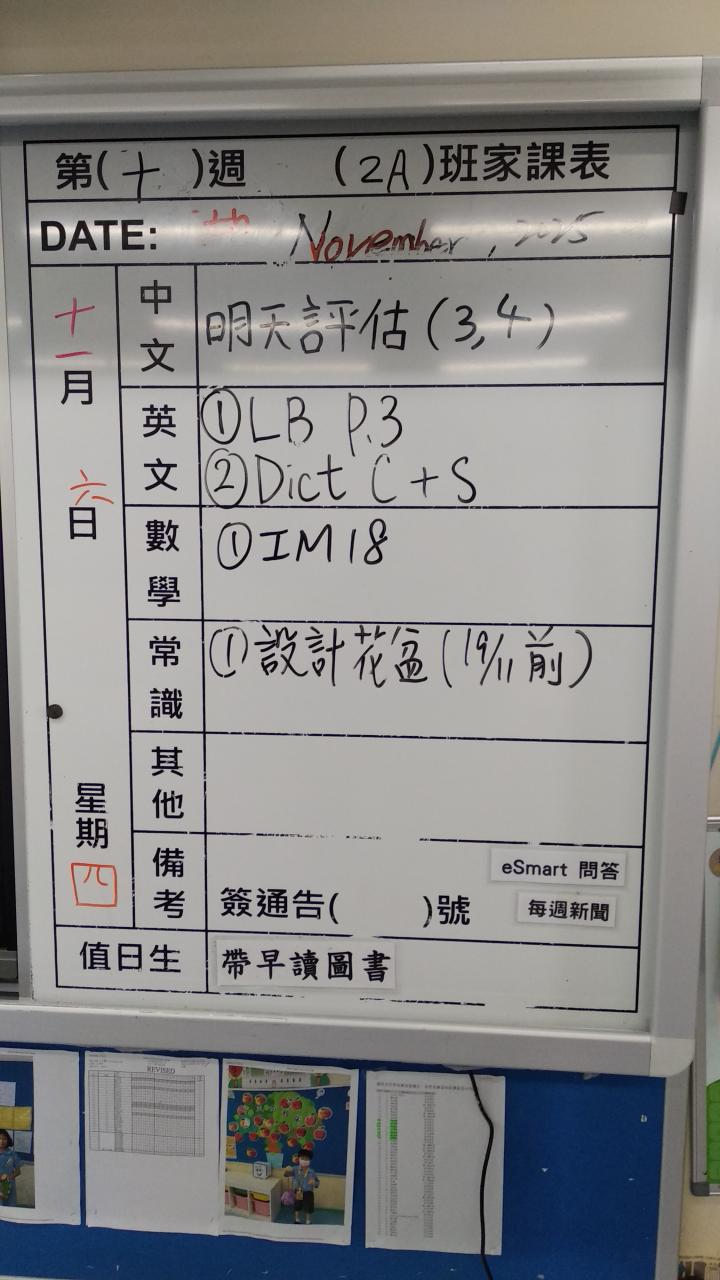 第(十)週 (2A)班家課表
DATE: November, 2025
十一月
六日
星期四
中文
明天評估(3,4)
英文
①LB P.3
②Dict C+S
數學
①IM18
常識
①設計花盆(19/11前)
其他
備考
eSmart 問答
簽通告( )號
每週新聞
值日生
帶早讀圖書
REVISED